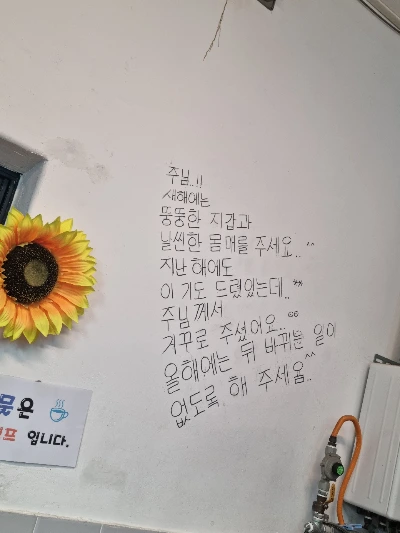 주님..!!
새해에는
뚱뚱한 지갑과
날씬한 몸매를 주세요..^^
지난 해에도
이 기도 드렸었는데..
주님께서
거꾸로 주셨어요..
올해에는 뒤 바뀌는 일이
없도록 해 주세욤..^^
은
프 입니다.